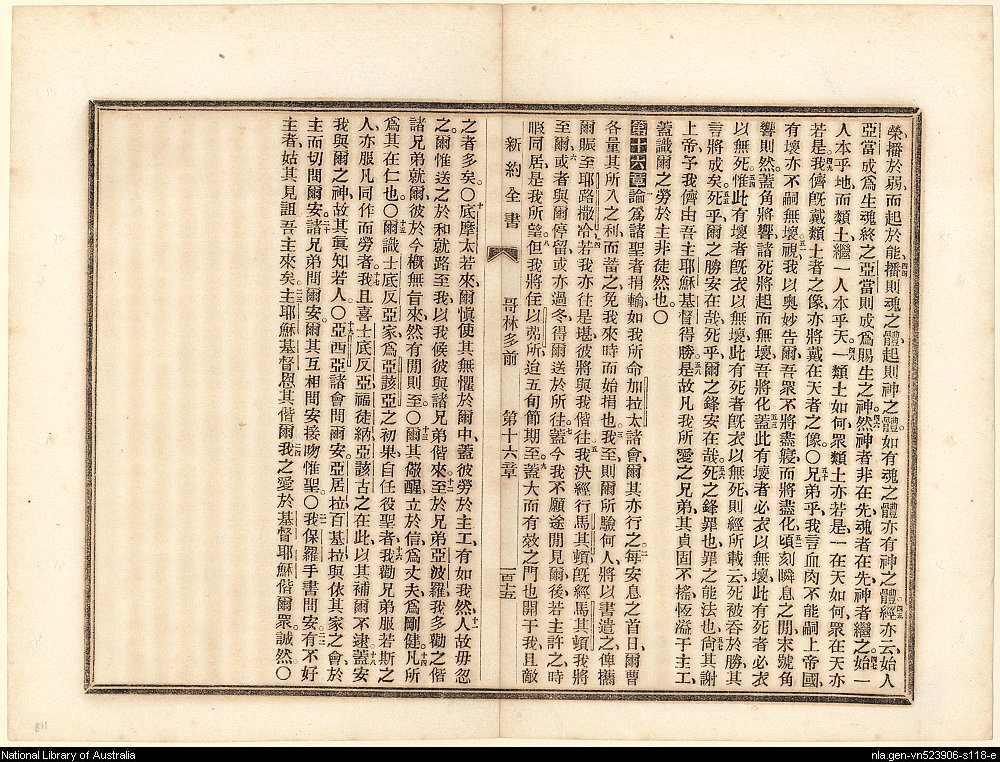 榮播於弱而起於能播則魂之體起則神之體如有魂之體亦有神之體經亦云始人
亞當成爲生魂終之亞當則成爲賜生之神然神者非在先魂者在先神者繼之始一
人本乎地而類土繼一人本乎天一類土如何眾類土亦若是一在天如何眾在天亦
若是我儕旣戴類土者之像亦將戴在天者之像○兄弟乎我言血肉不能嗣上帝國
有壞亦不嗣無壞視我以奧妙告爾吾眾不將盡寢而將盡化頃刻瞬息之間末號角
響則然蓋角將響諸死將起而無壞吾將化蓋此有壞者必衣以無壞此有死者必衣
以無死惟此有壞者旣衣以無壞此有死者旣衣以無死則經所載云死被吞於勝其
言將成矣死乎爾之勝安在哉死乎爾之鋒安在哉死之鋒罪也罪之能法也尙其謝
上帝予我儕由吾主耶穌基督得勝是故凡我所愛之兄弟其貞固不搖恆溢于主工
蓋識爾之勞於主非徒然也○
第十六章論爲諸聖者捐輸如我所命加拉太諸會爾其亦行之每安息之首日爾曹
各量其所入之利而蓄之免我來時而始捐也我至則爾所驗何人將以書遣之俾攜
爾賑至耶路撒冷若我亦往是堪彼將與我偕往我決經行馬其頓旣經馬其頓我將
至爾或者與爾停留或亦過冬得爾送於所往蓋今我不願途間見爾後若主許之時
暇同居是我所望但我將在以弗所迨五旬節期至蓋大而有效之門也開于我且敵
新約全書
哥林多前
第十六章
一百十五
之者多矣○底摩太若來爾愼使其無懼於爾中蓋彼勞於主工有如我然人故毋忽
之爾惟送之於和就路至我以我候彼與諸兄弟偕來至於兄弟亞波羅我多勸之偕
諸兄弟就爾彼於今概無旨來然有閒則至○爾其儆醒立於信爲丈夫爲剛健凡所
爲其在仁也○爾識士底反亞家爲亞該亞之初果自任役聖者我勸兄弟服若斯之
人亦服凡同作而勞者我且喜士底反亞福徒納亞該古之在此以其補爾不逮蓋安
我與爾之神故其眞知若人○亞西亞諸會問爾安亞居拉百基拉與依其家之會於
主而切問爾安諸兄弟問爾安爾其互相問安接吻惟聖○我保羅手書問安有不好
主者姑其見詛吾主來矣主耶穌基督恩其偕爾我之愛於基督耶穌偕爾眾誠然○
National Library of Australia
nla.gen-vn523906-s118-e